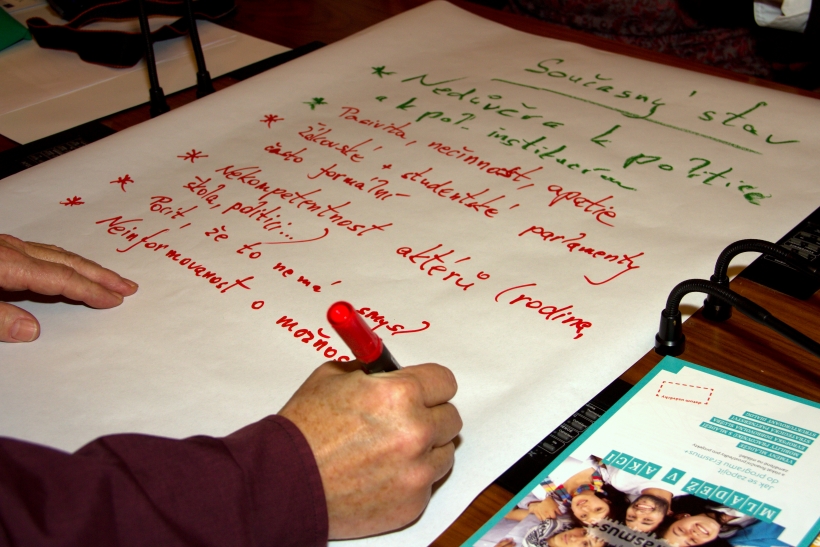 Současný stav
* Nedůvěra k politice
a k pol. institucím
* Pasivita, nečinnost, apatie
* Žákovské + studentské parlamenty
často formální
* Nekompetentnost aktérů (rodina,
škola, politici...)
* Pocit, že to nemá smysl
* Neinformovanost o možnos
MLÁDEŽ V AKCI
Jak se zapojit
do programu Erasmus+